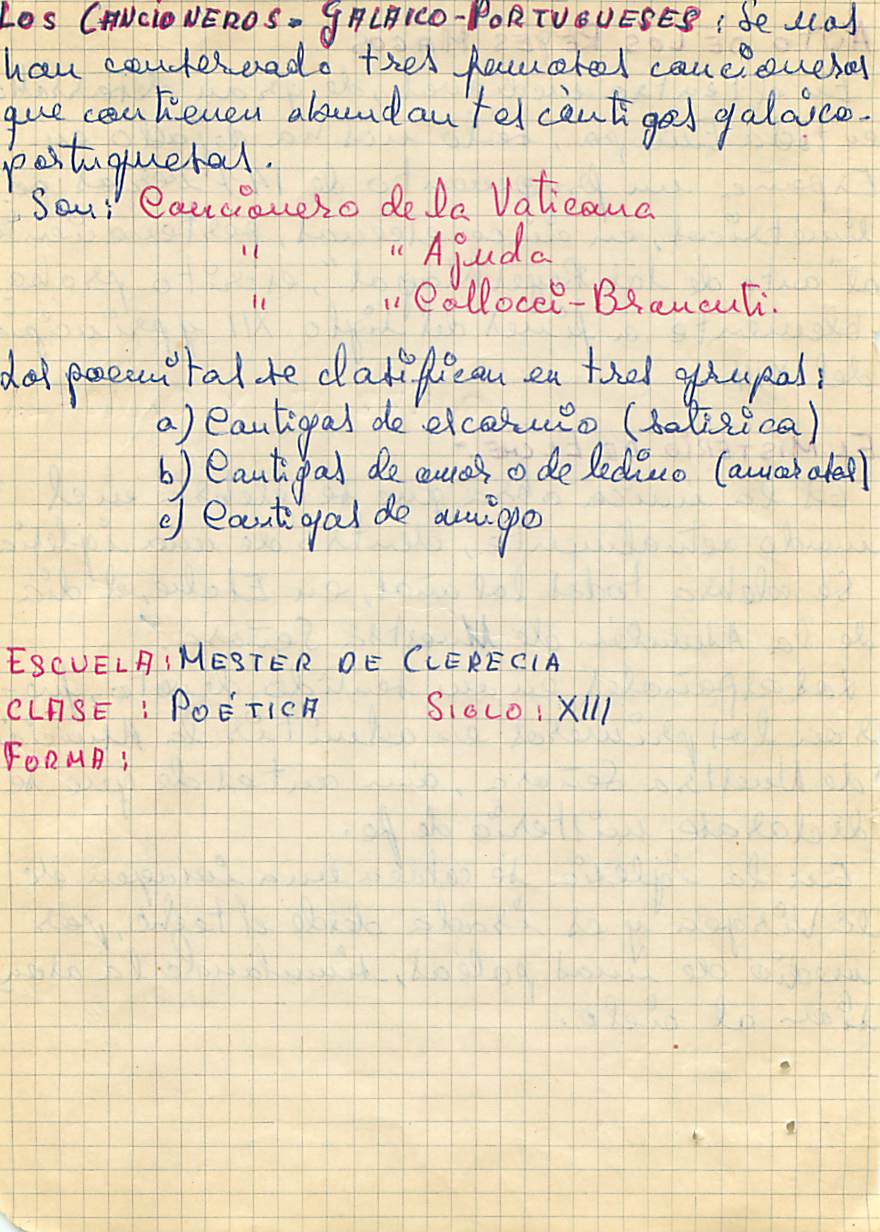 LOS CANCIONEROS-GALAICO-PORTUGUESES: Se nos
han conservado tres famosos cancioneros
que contienen abundantes cántigas galaico-
portuguesas.
Son: Cancionero de la Vaticana
" " Ajuda
" " Collocci-Brancuti.
Los poemitas se clasifican en tres grupos:
a) Cantigas de escarnio (satirica)
b) Cantigas de amor o de ledino (amorosas)
c) Cantigas de amigo
ESCUELA: MESTER DE CLERECIA
CLASE : POÉTICA SIGLO: XIII
FORMA: